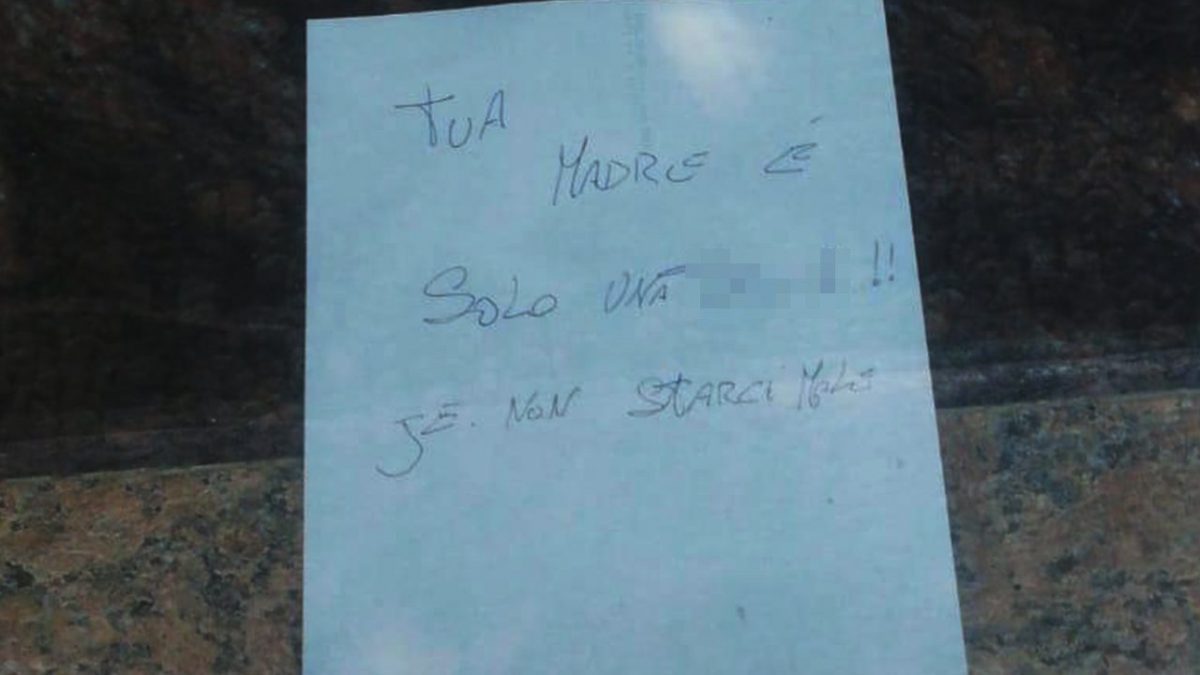 TUA
MADRE É
SOLO UNA !!
SE. NON STARCI MALE